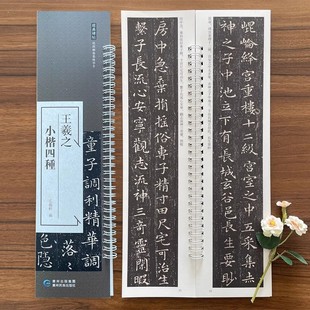 王羲之
小楷四種
童子調利精華調
落
色隱
崐崙絳宮重樓十二級宮室之中五采集赤
神之子中池立下有長城玄谷邑長生要眇
房中急棄捐淫俗專子精寸田尺宅可治生
繫子長流心安寧觀志流神三奇靈閒暇